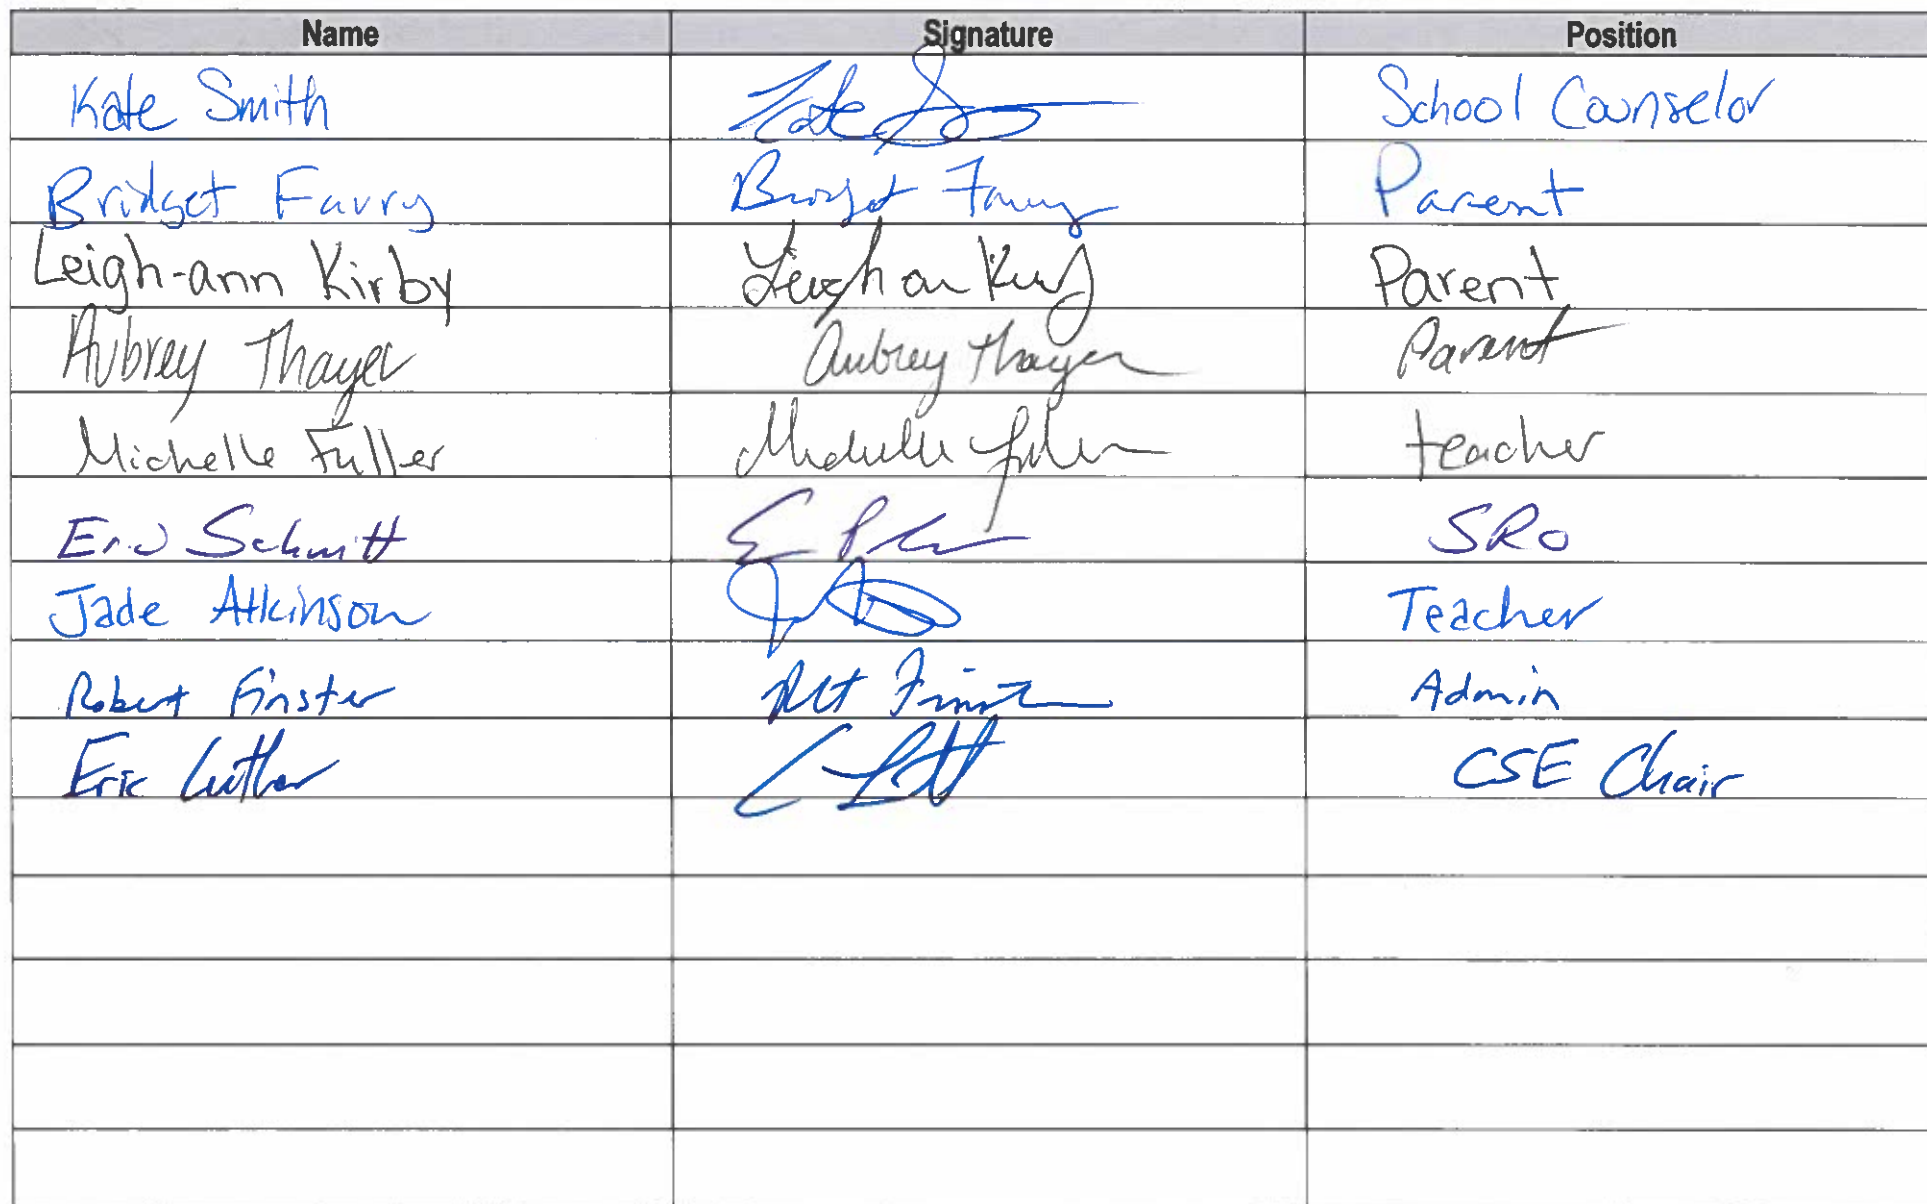 Name Signature Position
Kate Smith Kate S School Counselor
Bridget Favry Bridget Favry Parent
Leigh-ann Kirby Leigh an Kirby Parent
Aubrey Thayer Aubrey Thayer Parent
Michelle Fuller Michelle Fuller teacher
Schmitt SRO
Jade Atkinson Teacher
Robert Finster Finster Admin
Eric Luther CSE Chair